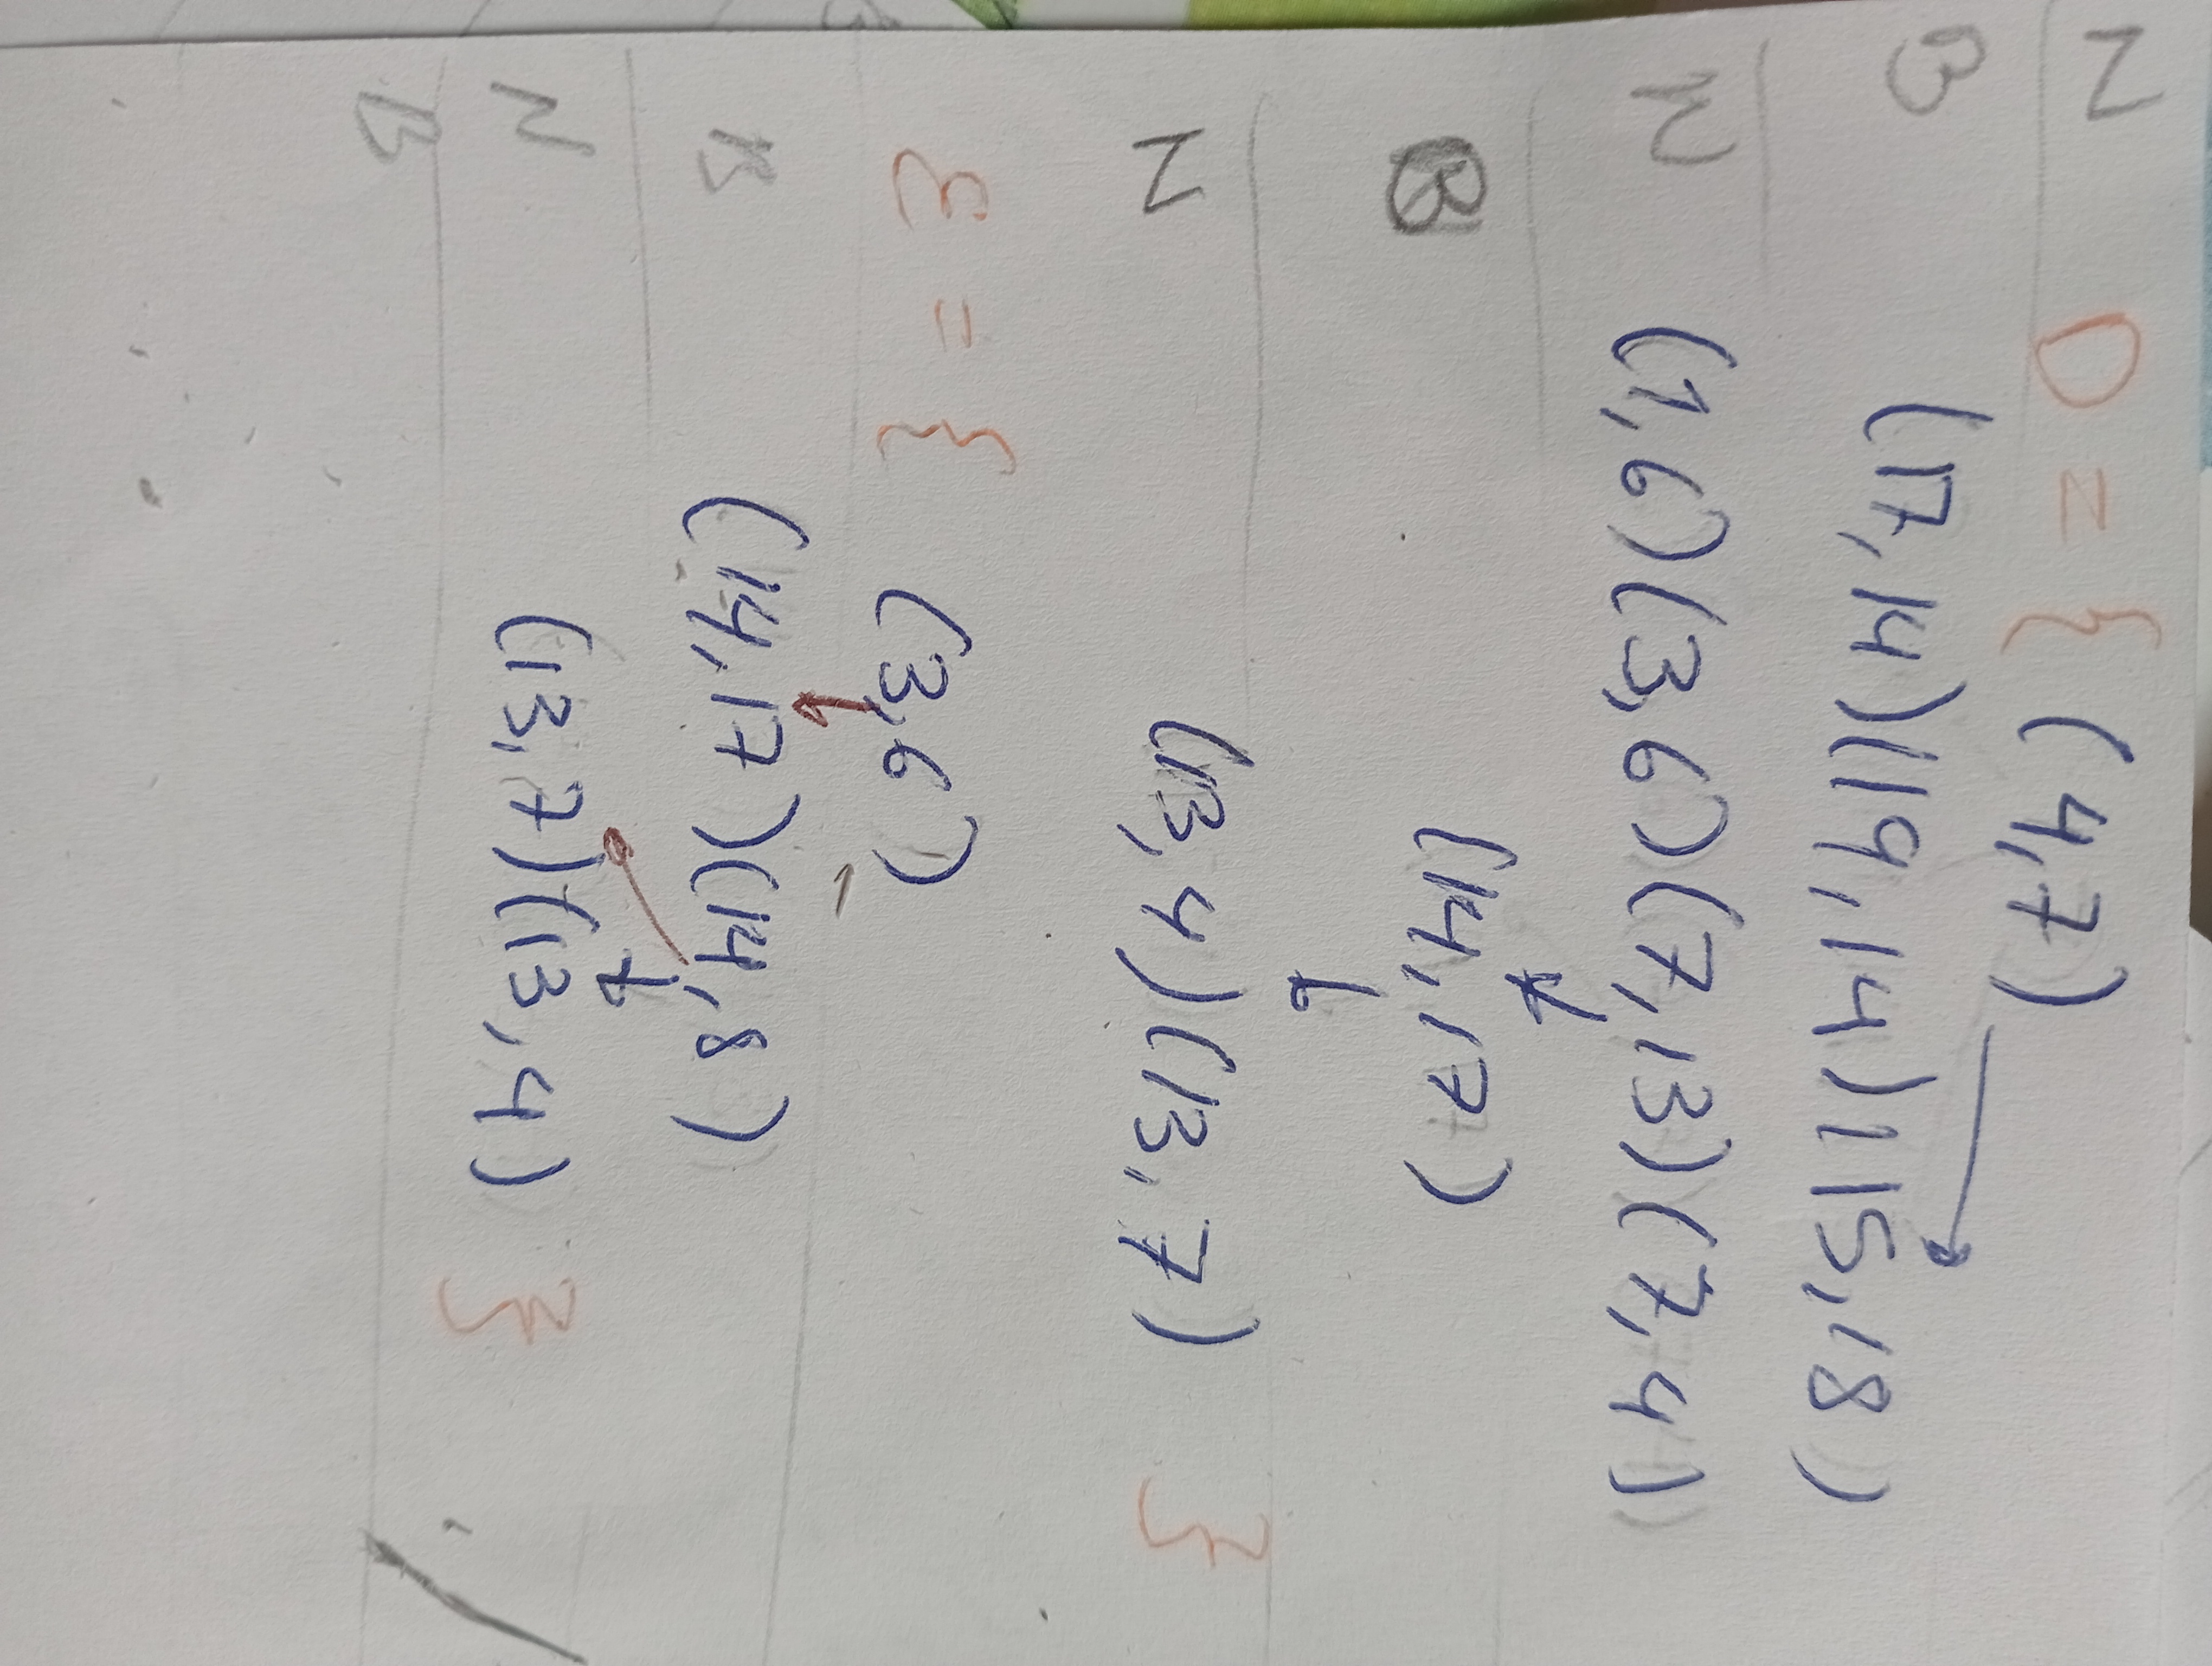 N D = { (4,7)
B (17,14)(19,14)(15,18)
N (1,6)(3,6)(7,13)(7,4)
B (14,17)
N (13,4)(13,7) }
E = { (3,6)
B (14,17)(14,8)
N (13,7)(13,4) }
B